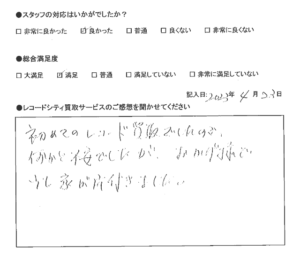 ●スタッフの対応はいかがでしたか?
□ 非常に良かった ☑ 良かった □ 普通 □ 良くない □ 非常に良くない
●総合満足度
□ 大満足 ☑ 満足 □ 普通 □ 満足していない □ 非常に満足していない
記入日: 2023年 4月 23日
●レコードシティ買取サービスのご感想を聞かせてください
初めてのレコード買取でしたので、
何かと不安でしたが、おかげ様で
家が片付きました。